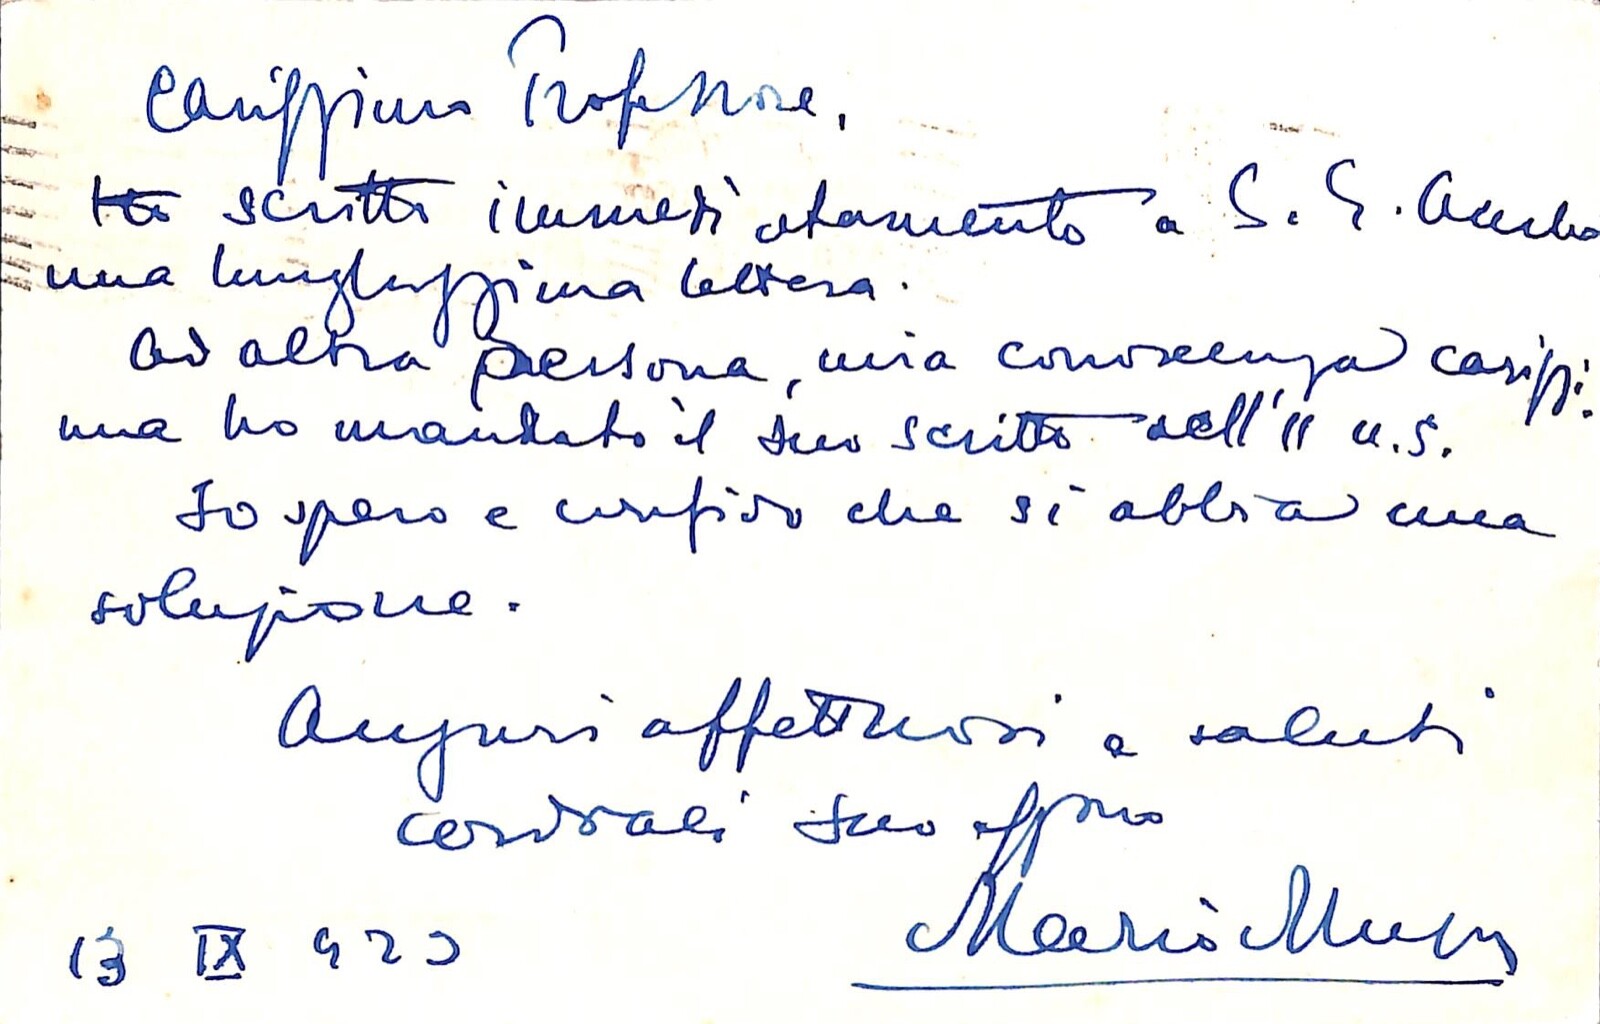 Carissimo Professore,
ho scritto immediatamente a S. E. Acerbo
una lunghissima lettera.
Ad altra persona, mia conoscenza carissi-
ma ho mandato il suo scritto dell'11 u.s.
Io spero e confido che si abbia una
soluzione.
Auguri affettuosi e saluti
cordiali suo aff.mo
Mario
13 IX 923